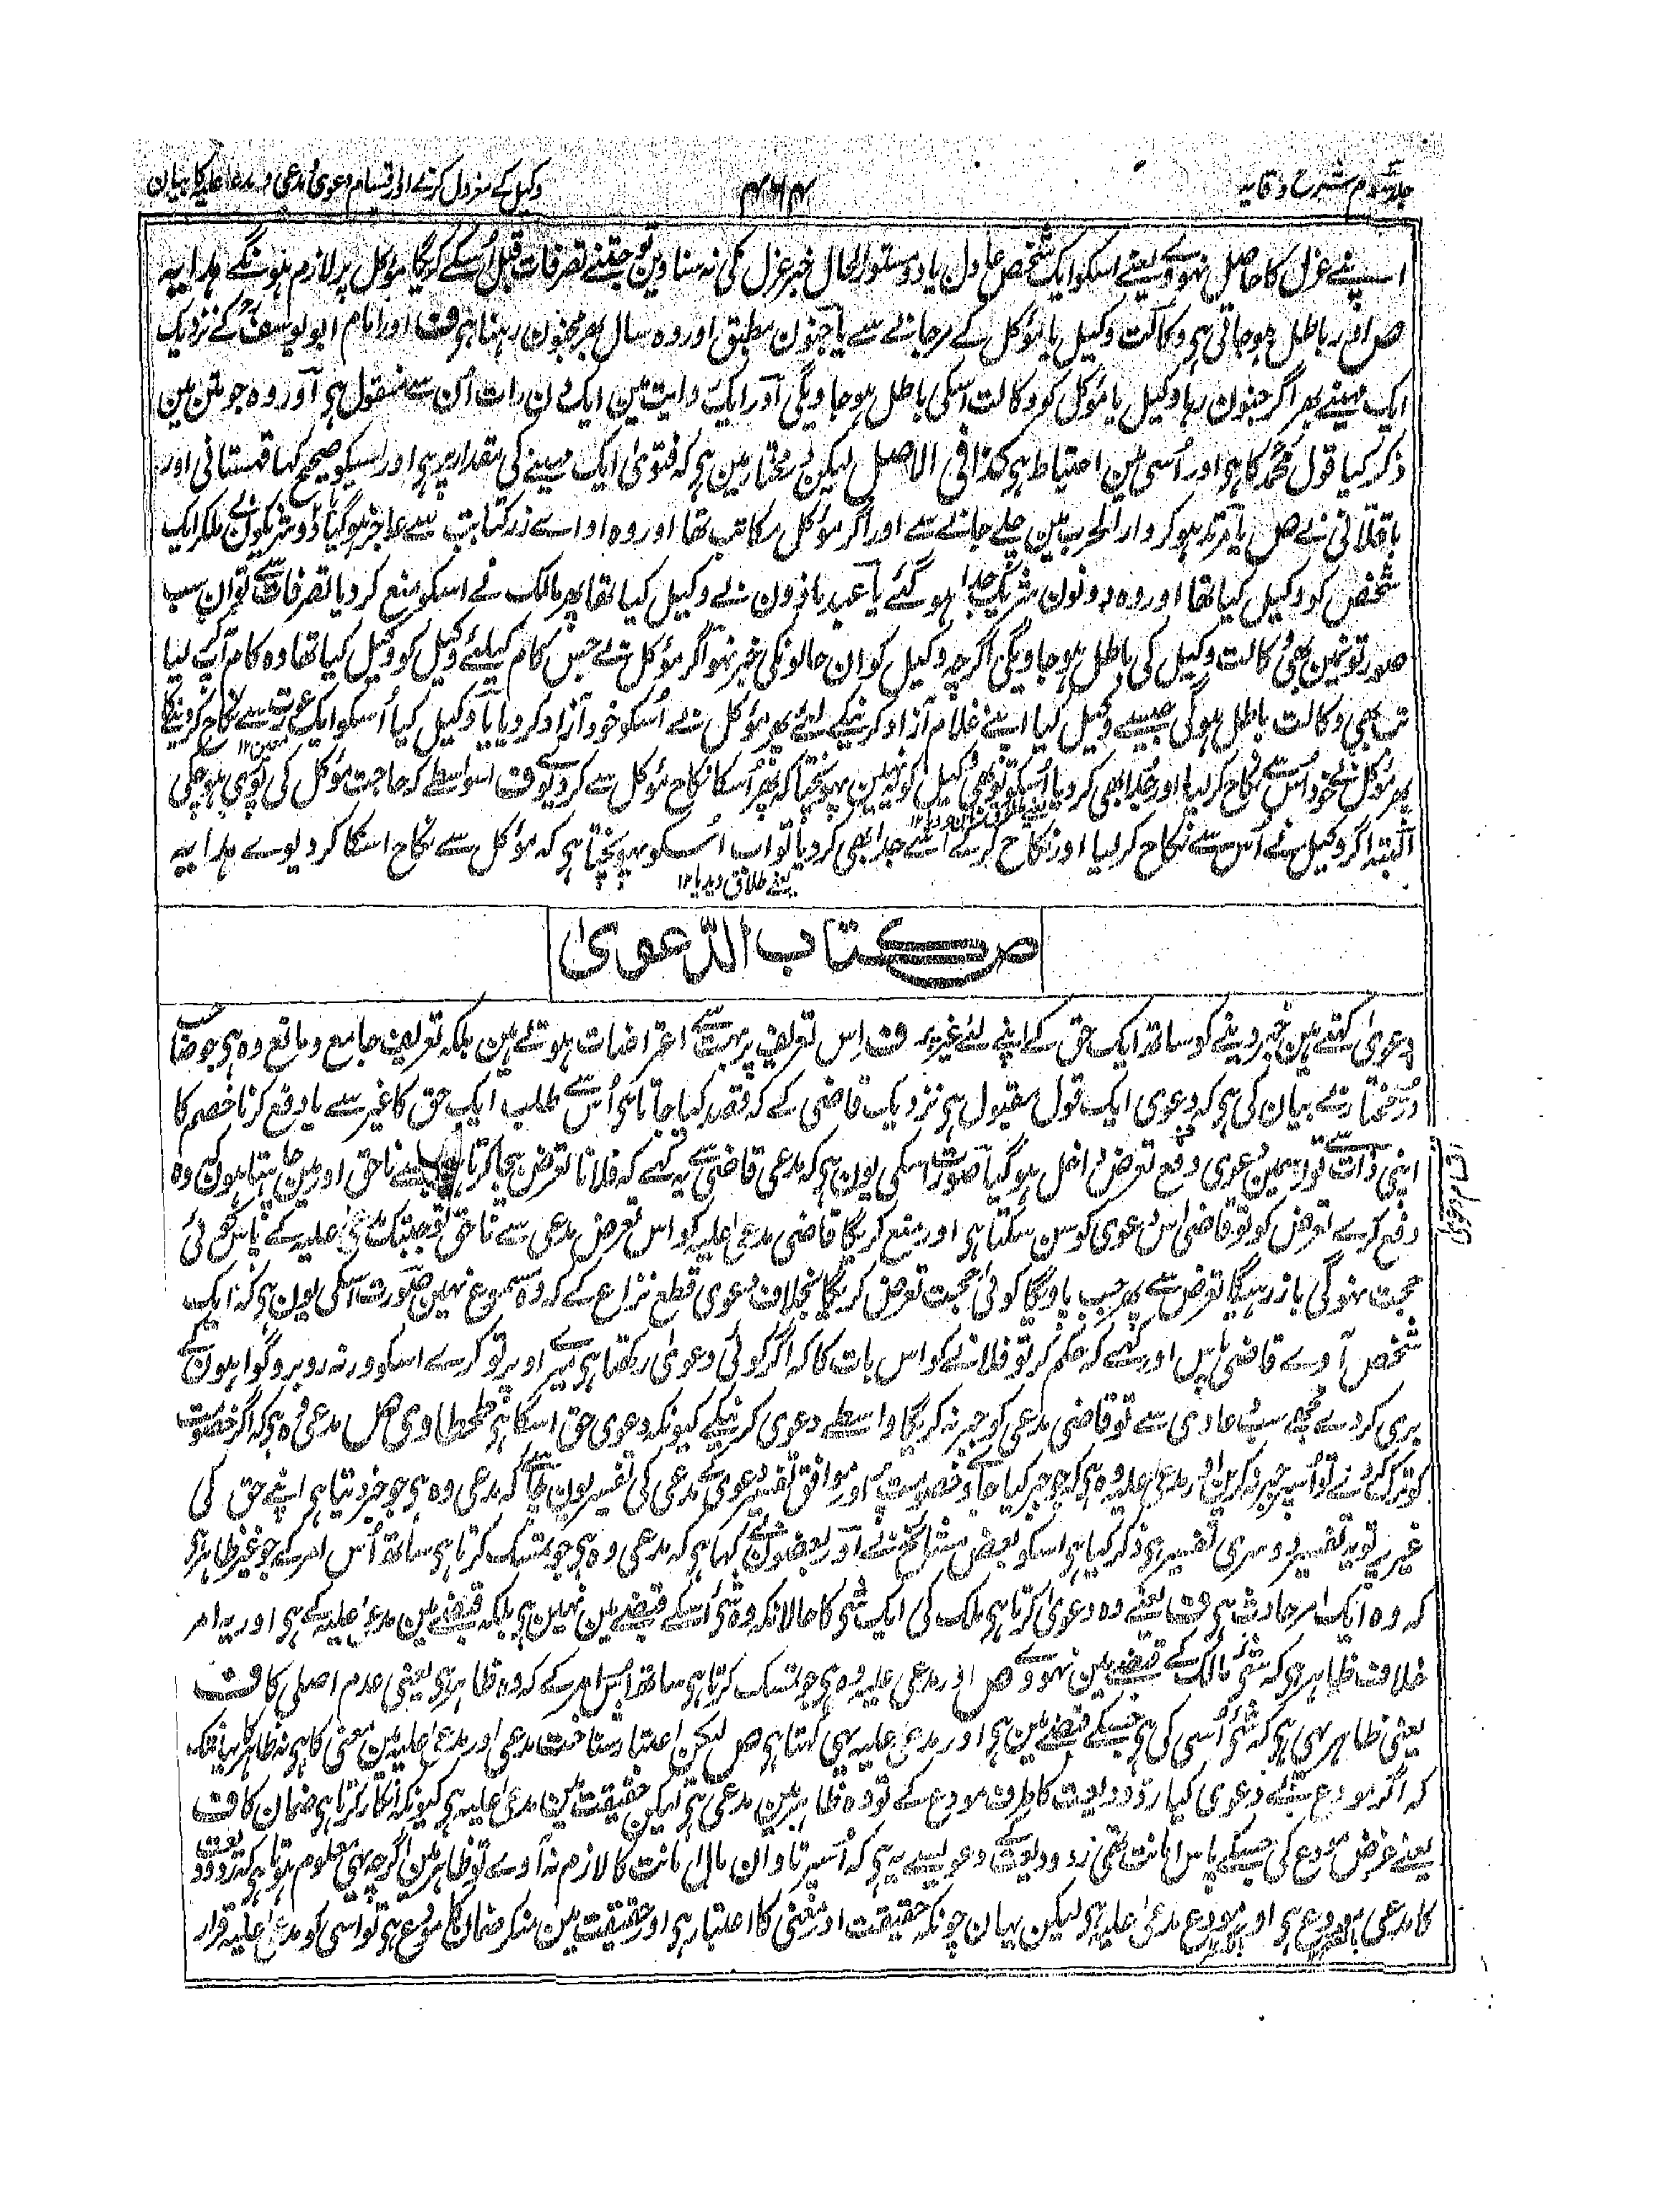 جلد سوم شرح وقایہ
۴۶۴
وکیل کے معزول کرنے اور اقسام دعوی مدعی و مدعا علیہ کا بیان
اپنے عزل کا حاصل نہووے یعنے اسکو ایک شخص عادل یا دو مستور الحال خبر عزل کی نہ سناوین تو جتنے تصرفات قبل اُسکے کریگا مؤکل پر لازم ہونگے ہدایہ
ص اور باطل ہو جاتی ہی وکالت وکیل یا مؤکل کے مر جانے سے یا جنون مطبق اور وہ سال بھر مجنون رہنا ہی ف اور امام ابو یوسف کے نزدیک
ایک مہینے بھر اگر جنون رہا وکیل یا مؤکل کو وکالت اسکی باطل ہو جاویگی اور ایک روایت مین ایک دن رات اُن سے منقول ہی اور وہ جو متن مین
ذکر کیا قول محمد کا ہی اور اُسی مین احتیاط ہی کذا فی الاصل لیکن در مختار مین ہی کہ فتویٰ ایک مہینے کی مقدار پر ہی اور اسیکو صحیح کہا قہستانی اور
باقلانی نے ص یا مرتد ہو کر دار الحرب مین چلے جانے سے اور اگر مؤکل مکاتب تھا اور وہ ادا سے زر کتابت سے عاجز ہو گیا یا دو شریکون نے ملکر ایک
شخص کو وکیل کیا تھا اور وہ دونون شریک جدا ہو گئے یا عبد ماذون نے وکیل کیا تھا پھر مالک نے اسکو منع کر دیا تصرفات سے تو ان سب
صورتونمین بھی وکالت وکیل کی باطل ہو جاویگی اگرچہ وکیل کو ان حالونکی خبر نہو اگر مؤکل نے جس کام کیلیے وکیل کو وکیل کیا تھا وہ کام آپ لیا
تب بھی وکالت باطل ہوگی جیسے وکیل کیا اپنے غلام آزاد کرنیکے لیے پھر مؤکل نے اُسکو خود آزاد کر دیا یا وکیل کیا اُسکو ایک عورت سے نکاح کر دینیکا
پھر مؤکل نے خود اُس سے نکاح کر لیا اور جدا بھی کر دیا اُسکو تو بھی وکیل کو نہین پہونچتا کہ پھر اُسکا نکاح مؤکل سے کر دیوے ف اسواسطے کہ حاجت مؤکل کی پوری ہو چکی
البتہ اگر وکیل نے اُس سے نکاح کر لیا اور نکاح کر کے اُسے جدا بھی کر دیا تو اب اُسکو پہونچتا ہی کہ مؤکل سے نکاح اسکا کر دیوے ہدایہ
یعنے طلاق دیدیا ۱۲
ص کتاب الدعوی
دعویٰ کہتے ہین خبر دینے کو ساتھ ایک حق کے اپنے لئے غیر پر ف اِس تعریف پر بہت سے اعتراضات ہوتے ہین بلکہ تعریف جامع و مانع وہ ہی جو صاحب
در مختار نے بیان کی ہی کہ دعوی ایک قول مقبول ہی نزدیک قاضی کے کہ قصد کیا جاتا ہی اُس سے طلب ایک حق کا غیر سے یا دفع کرنا خصم کا
اپنی ذات سے تو اسمین دعوی دفع تعرض داخل ہو گیا صورت اسکی یون ہی کہ مدعی قاضی سے یہ کہے کہ فلانا تعرض بیجا کرتا ہی ناحق اور مین چاہتا ہون کہ وہ
دفع کرے تعرض کو تو قاضی اس دعوی کو سن سکتا ہی اور منع کریگا قاضی مدعی علیہ کو اس تعرض مدعی سے ناحق تو جبتک مدعی علیہ کے پاس کوئی
حجت نہوگی باز رہیگا تعرض سے پھر جب پاویگا کوئی حجت تعرض کریگا بخلاف دعوی قطع نزاع کے کہ وہ مسموع نہین صورت اسکی یون ہی کہ ایک
شخص آوے قاضی پاس اور کہے کہ حکم کر تو فلانے کو اس بات کا کہ اگر کوئی دعویٰ رکھتا ہی میرے اوپر تو کرے اسکو ورنہ روبرو گواہون کے
بری کر دے مجھے سب دعاوی سے تو قاضی مدعی کو جبر نہ کریگا واسطے دعوی کرنیکے کیونکہ دعوی حق اسکا ہی طحطاوی ص مدعی وہ ہی کہ اگر خصومت
کو ترک کرے تو اُسپر جبر نہ کرین اور مدعی علیہ وہ ہی کہ جو جبر کیا جاوے خصومت پر اور موافق تفسیر دعوی کے مدعی کی تفسیر یون چاہیے کہ مدعی وہ ہی جو خبر دیتا ہی اپنے حق کی
غیر پر تو یہ تفسیر دوسری تفسیر ہی ذکر کیا ہی اسکو بعض مشائخ نے اور بعضون نے کہا ہی کہ مدعی وہ ہی جو تمسک کرتا ہی ساتھ اُس امر کے جو غیر ظاہر ہو
کہ وہ ایک امر حادث ہی ف یعنے وہ دعویٰ کرتا ہی ملک کی ایک شی کا حالانکہ وہ شی اُسکے قبضے مین نہین ہی بلکہ قبضے مین مدعی علیہ کے ہی اور یہ امر
خلاف ظاہر ہی کہ شی مالک کے قبضے مین نہووے ص اور مدعی علیہ وہ ہی جو تمسک کرتا ہی ساتھ اُس امر کے کہ وہ ظاہر ہی یعنی عدم اصلی کا ف
یعنی ظاہر یہی ہی کہ شی اُسی کی ہی جسکے قبضے مین ہی اور مدعی علیہ یہی کہتا ہی ص لیکن اعتبار شناخت مدعی اور مدعی علیہ مین معنی کا ہی نہ ظاہر کا یہانتک
کہ اگر مودع نے دعوی کیا رد ودیعت کا طرف مودع کے تو وہ ظاہر مین مدعی ہی لیکن حقیقت مین مدعی علیہ ہی کیونکہ انکار کرتا ہی ضمان کا ف
یعنے غرض مودع کی جسکے پاس امانت تھی رد ودیعت کے دعویسے یہ ہی کہ اُسپر تاوان مال امانت کا لازم نہ آوے تو ظاہر مین اگرچہ یہی معلوم ہوتا ہی کہ رد ودیعت
کا مدعی مودع ہی اور مودع مدعی علیہ ہو لیکن یہان چونکہ حقیقت اور معنی کا اعتبار ہی اور حقیقت مین منکر ضمان کا مودع ہی تو اسی کو مدعی علیہ قرار